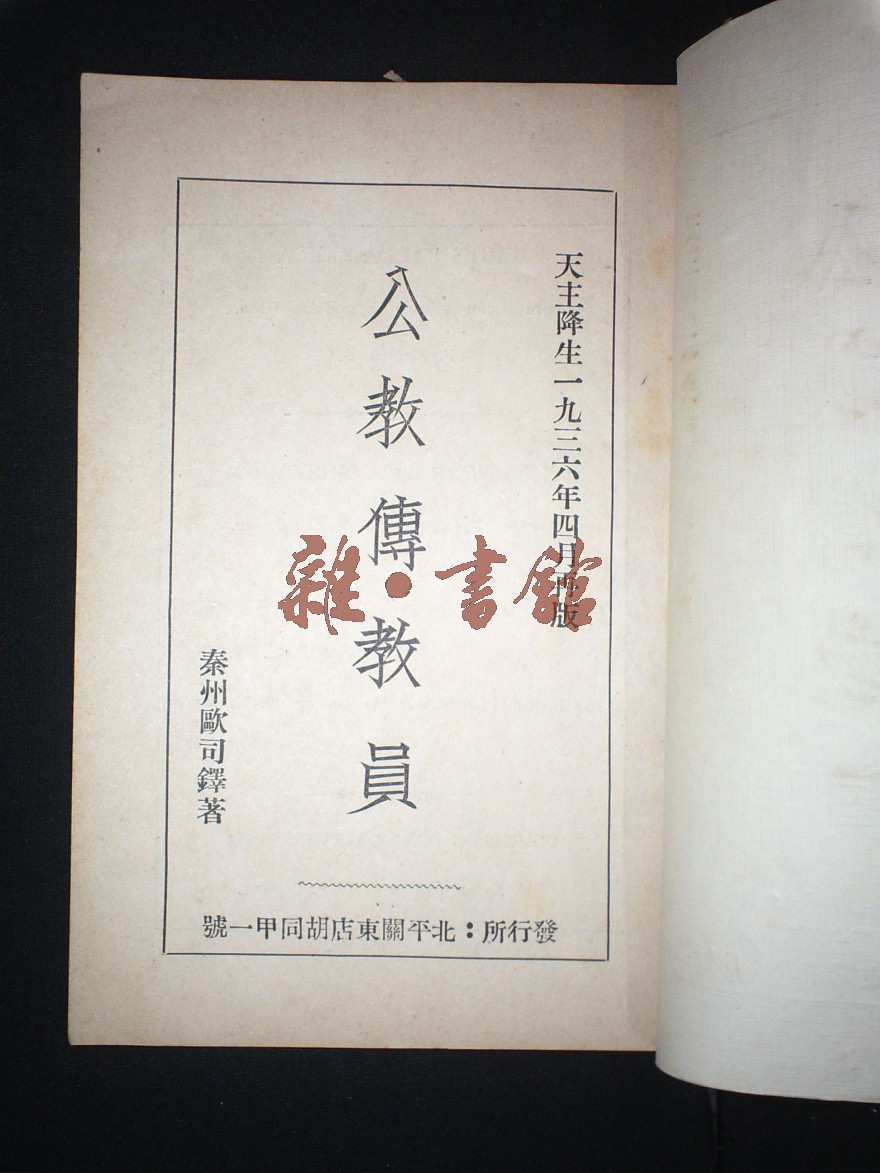 天主降生一九三六年四月再版
公教傳教員
秦州歐司鐸著
發行所：北平關東店胡同甲一號
雜·書館